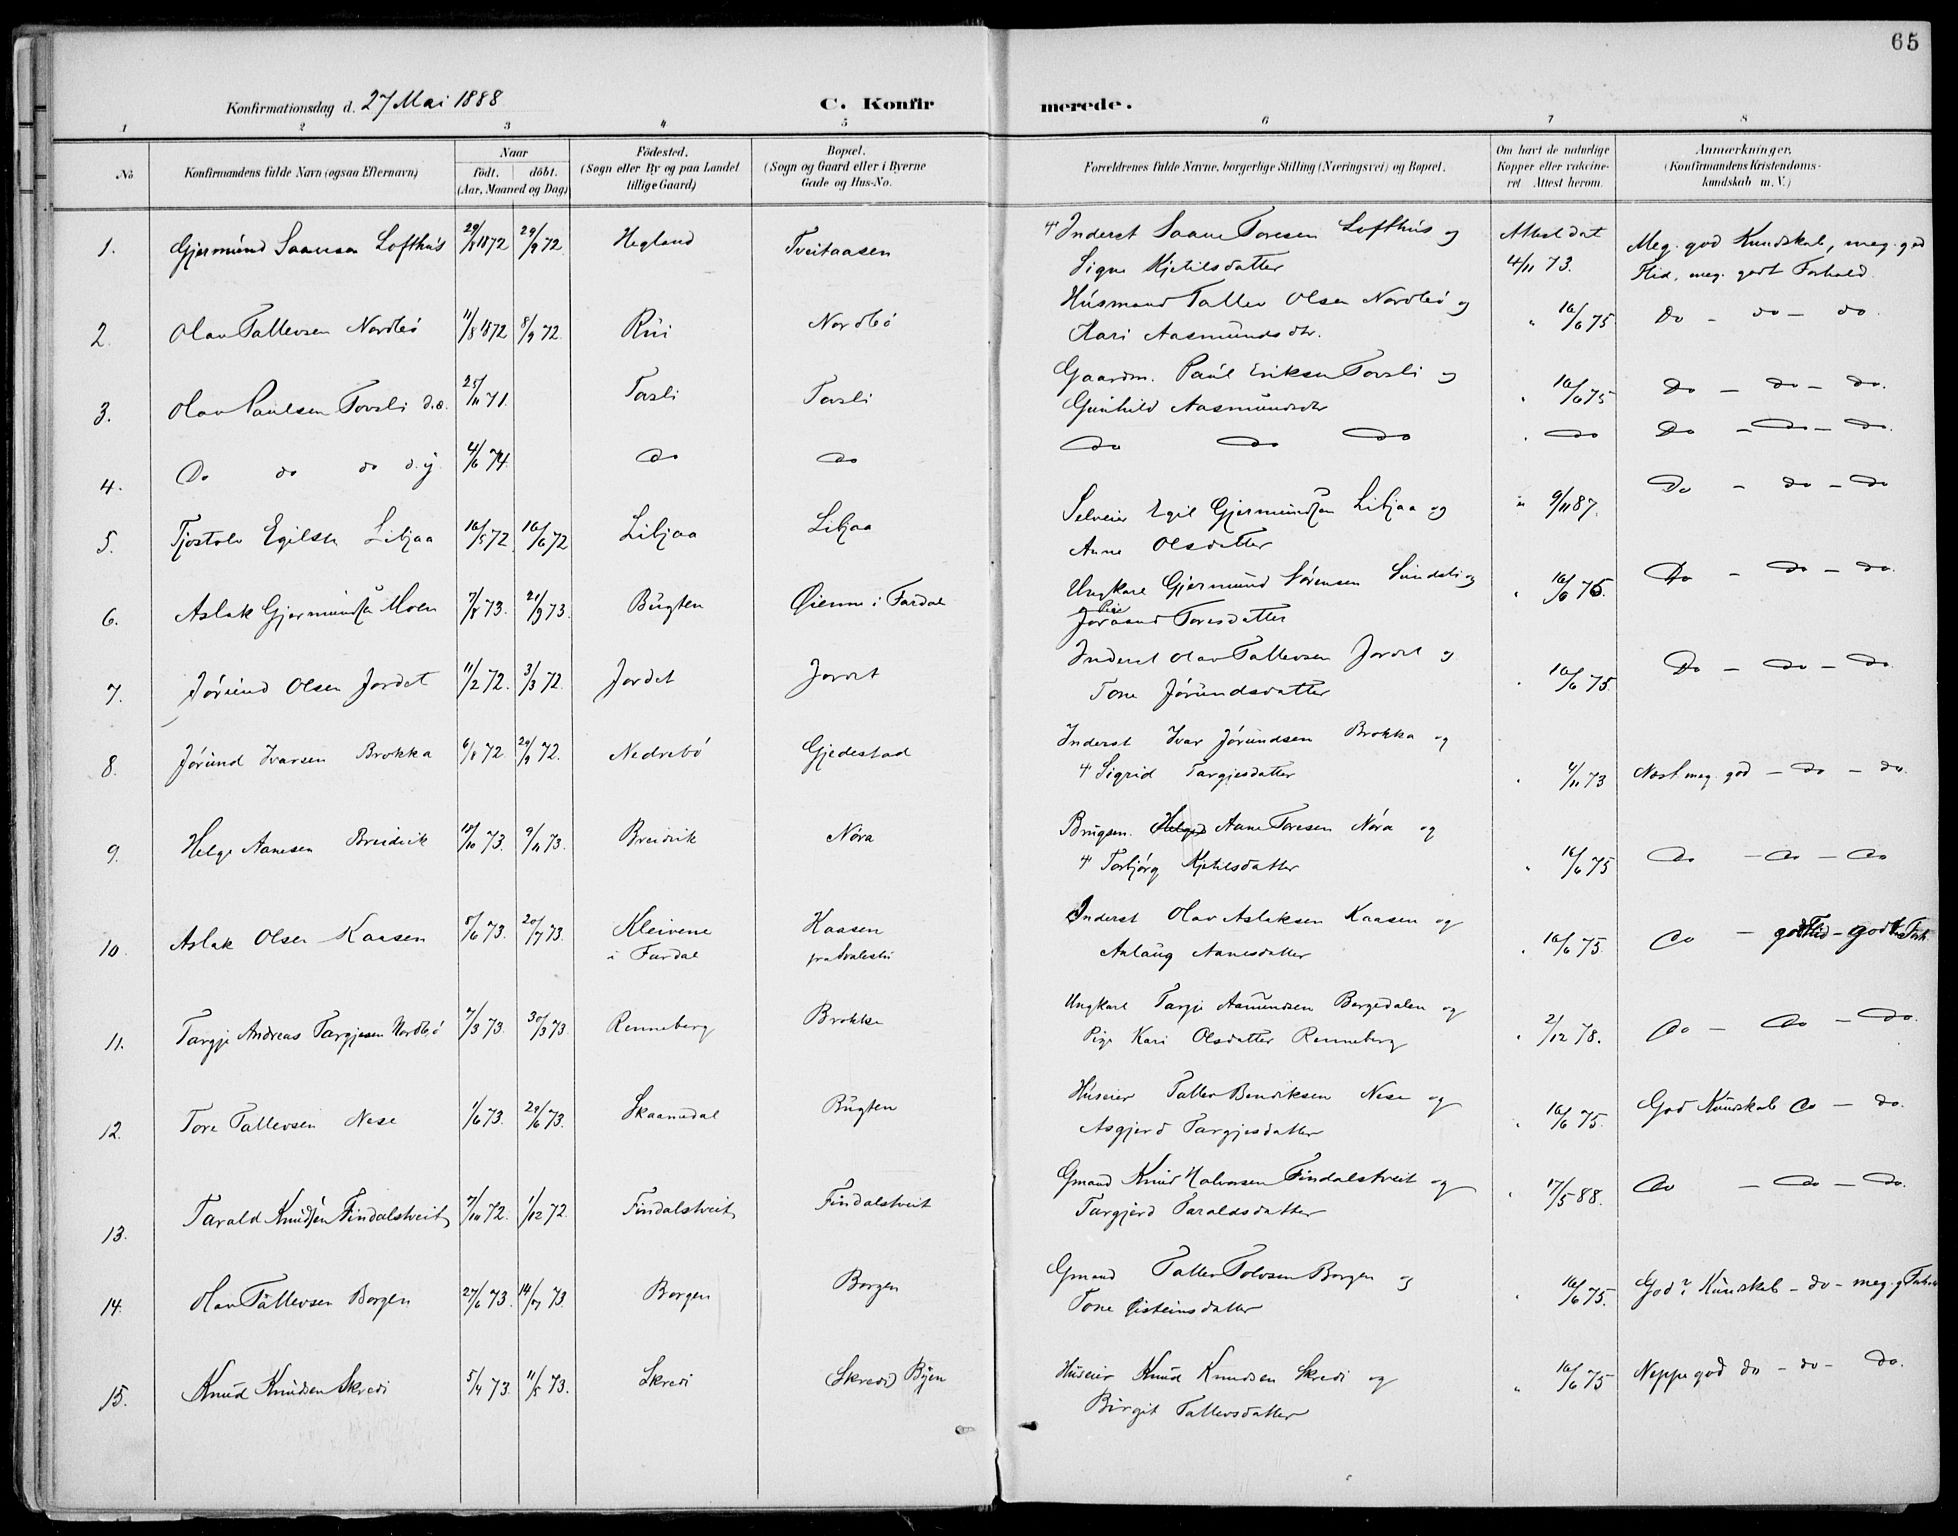 65
Konfirmationsdag d. 27 Mai 1888
C. Konfirmerede.
1 2 3 4 5 6 7 8
No
Konfirmandens fulde Navn (ogsaa Efternavn)
Naar
födt. döbt.
(Aar, Maaned og Dag)
Födested.
(Sogn eller By og paa Landet
tillige Gaard)
Bopæl.
(Sogn og Gaard eller i Byerne
Gade og Hus-No.
Forældrenes fulde Navne, borgerlige Stilling (Næringsvei) og Bopæl.
Om havt de naturlige
Kopper eller vakcine-
ret. Attest herom.
Anmærkninger.
(Konfirmandens Kristendoms-
kundskab m. V.)
1. Gjermund Saansen Lofthus 29/8 1872 29/9 72 Hegland Tveitaasen Inderst Saane Toresen Lofthus og Attest dat Meg. god Kundskab, meg. god
Signe Kjetilsdatter 4/11 73. Flid, meg. godt Forhold.
2. Olav Tallevsen Nordbö 11/8 1872 8/9 72. Rui Nordbö Husmand Tallev Olsen Nordbö og " 16/6 75 Do - do - do.
Kari Aasmundsdtr.
3. Olav Paulsen Tovsli d.æ. 25/11 71. Tovsli Tovsli Gaardm. Paul Eriksen Tovsli og " 16/6 75 Do - do - do.
Gunhild Aasmundsdtr
4. Do do do d.y. 4/6 74. do do do do do " do Do - do - do.
5. Tjostolv Egilsen Libjaa 16/5 72. 16/6 72 Libjaa Libjaa Selveier Egil Gjermundsen Libjaa og " 9/11 87. Do - do - do
Anne Olsdatter
6. Aslak Gjermundsen Moen 7/8 73. 21/9 73. Bugten Öienne i Fardal Ungkarl Gjermund Sörensen Sundsli og " 16/6 75. Do - do - do.
Pige
Joraand Toresdatter
7. Jörund Olsen Jordet 11/2 72. 3/3 72. Jordet Jordet Inderst Olav Tallevsen Jordet og " 16/6 75. Do - do - do.
Tone Jörundsdatter
8. Jörund Ivarsen Brokka 6/8 72. 29/9 72. Nedrebö Gjedestad Inderst Ivar Jörundsen Brokka og
Sigrid Targjesdatter " 4/11 73 Næst meg. god - do - do.
9. Helge Aanesen Breidvik 10/10 73. 9/11 73. Breidvik Nöra Brugsm. Aane Toresen Nöra og
Torbjörg Kjetilsdatter " 16/6 75 do - do - do
10 Aslak Olsen Kaasen 8/6 73. 20/7 73. Kleivene Kaasen Inderst Olav Aslaksen Kaasen og
i Fardal Aslaug Aanesdatter " 16/6 75. do - god Flid - godt Forh.
11. Targje Andreas Targjesen Nordbö 7/3 73. 30/3 73 Renneberg Brokke Ungkarl Targje Aamundsen Borgedalen og " 2/12 78. do - do - do.
Pige Kari Olsdatter Renneberg
12. Tore Tallevsen Nese 1/6 73. 29/6 73. Skaamedal Bugten Huseier Tallev Bendiksen Nese og " 16/6 75. God Kundskab do - do.
Asgjerd Targjesdatter
13. Tarald Knudsen Findalstveit 7/10 72. 1/12 72. Findalstveit Findalstveit Gmand Knud Halvorsen Findalstveit og " 17/5 88. do - do - do.
Targjerd Taraldsdatter
14. Olav Tallevsen Borgen 27/6 73. 14/7 73. Borgen Borgen Gmand Tallev Tolvsen Borgen og " 16/6 75. God? Kundskab - do - meg. g. Forh
Tone Eisteinsdatter
15. Knud Knudsen Skredi 5/4 73. 11/5 73. Skredi Skredi Byen Huseier Knud Knudsen Skredi og " 16/6 75 Neppe god do - do - do.
Birgit Tallevsdatter